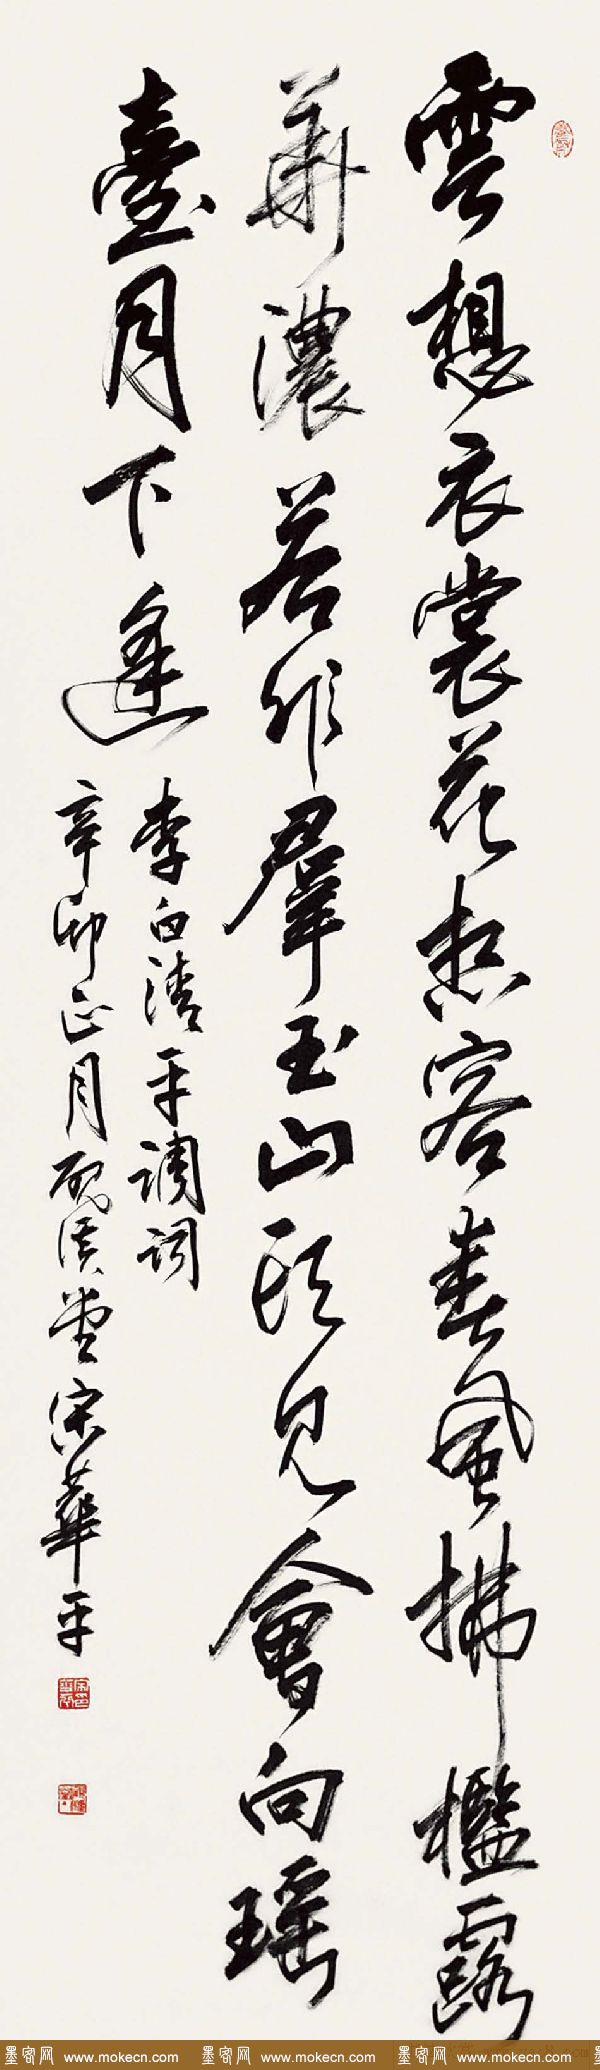 雲想衣裳花想容春風拂檻露
華濃若非羣玉山頭見會向瑶
臺月下逢
李白清平調詞
辛卯正月硯堂宋華平
墨客网 www.mokecn.com 墨客网 www.mokecn.com 墨客网 www.mokecn.com